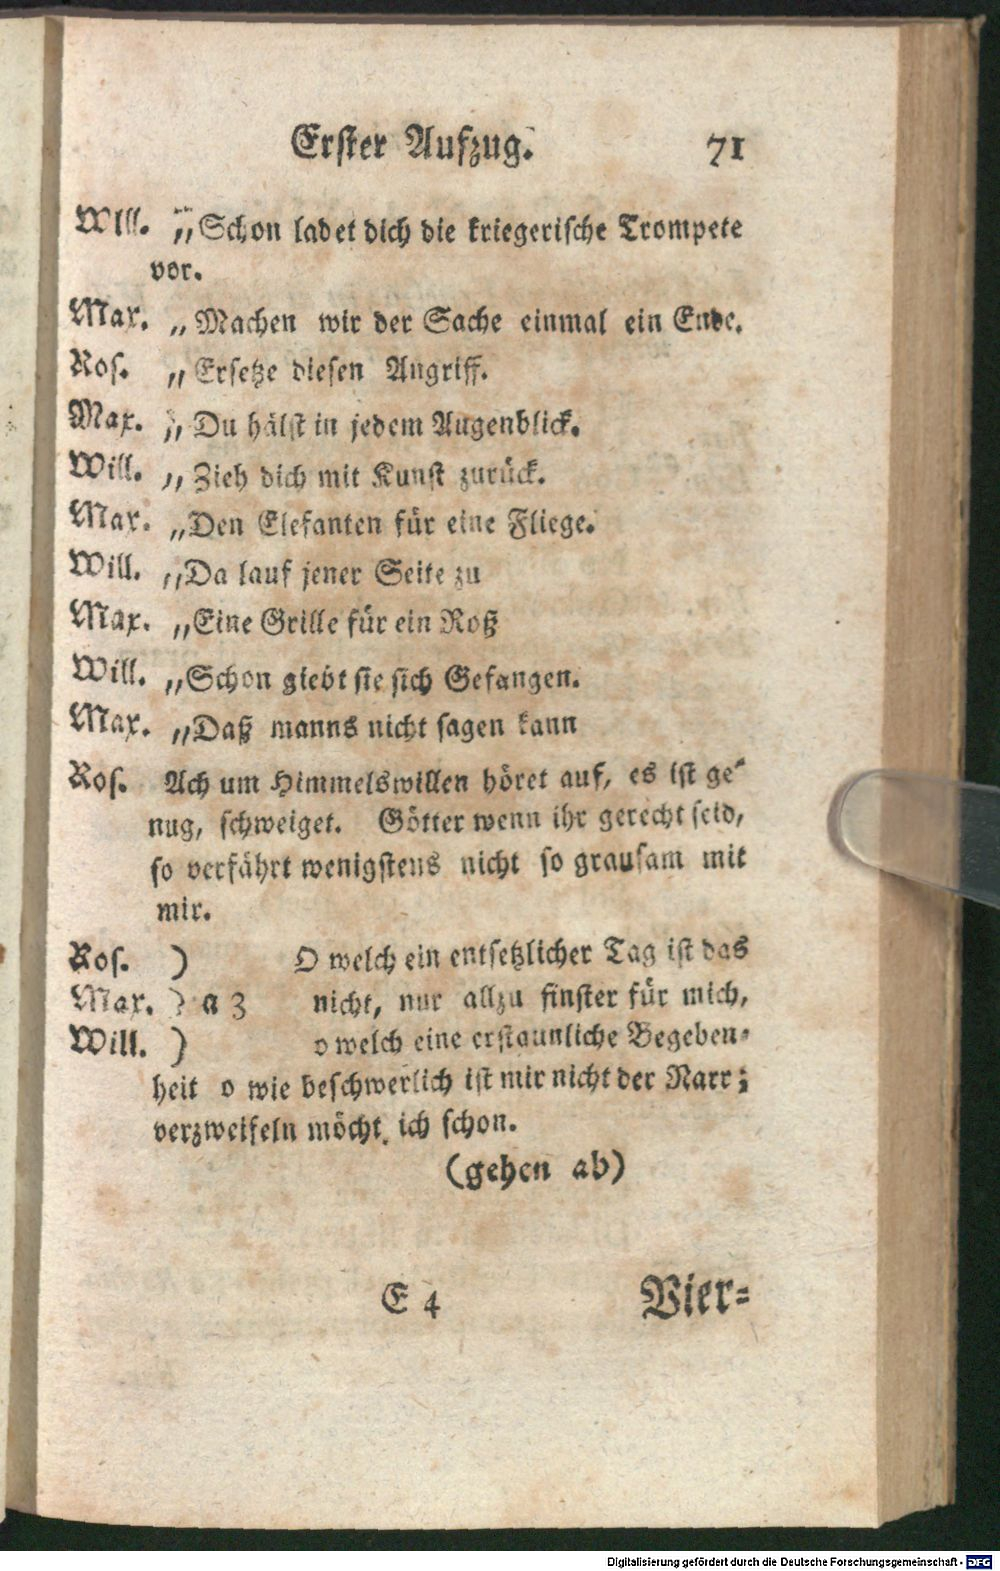 Erster Aufzug. 71
Wlll. „Schon ladet dich die kriegerische Trompete
vor.
Max. „Machen wir der Sache einmal ein Ende.
Ros. „Ersetze diesen Angriff.
Max. „Du hälst in jedem Augenblick.
Will. „Zieh dich mit Kunst zurück.
Max. „Den Elefanten für eine Fliege.
Will. „Da lauf jener Seite zu
Max. „Eine Grille für ein Roß
Will. „Schon giebt sie sich Gefangen.
Max. „Daß manns nicht sagen kann
Ros. Ach um Himmelswillen höret auf, es ist ge-
nug, schweiget. Götter wenn ihr gerecht seid,
so verfährt wenigstens nicht so grausam mit
mir.
Ros. ) O welch ein entsetzlicher Tag ist das
Max. ) a 3 nicht, nur allzu finster für mich,
Will. ) o welch eine erstaunliche Begeben-
heit o wie beschwerlich ist mir nicht der Narr;
verzweifeln möcht ich schon.
(gehen ab)
E 4 Vier-
Digitalisierung gefördert durch die Deutsche Forschungsgemeinschaft - DFG